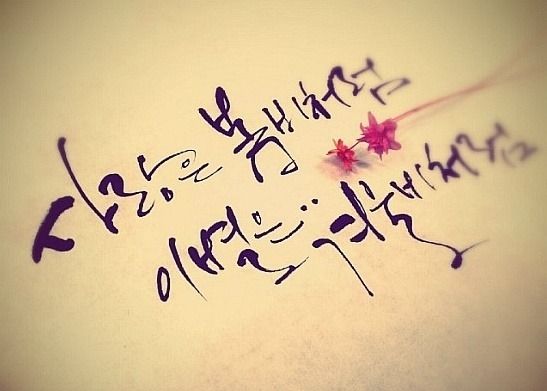 사랑은 봄비처럼
이별은.. 겨울비처럼